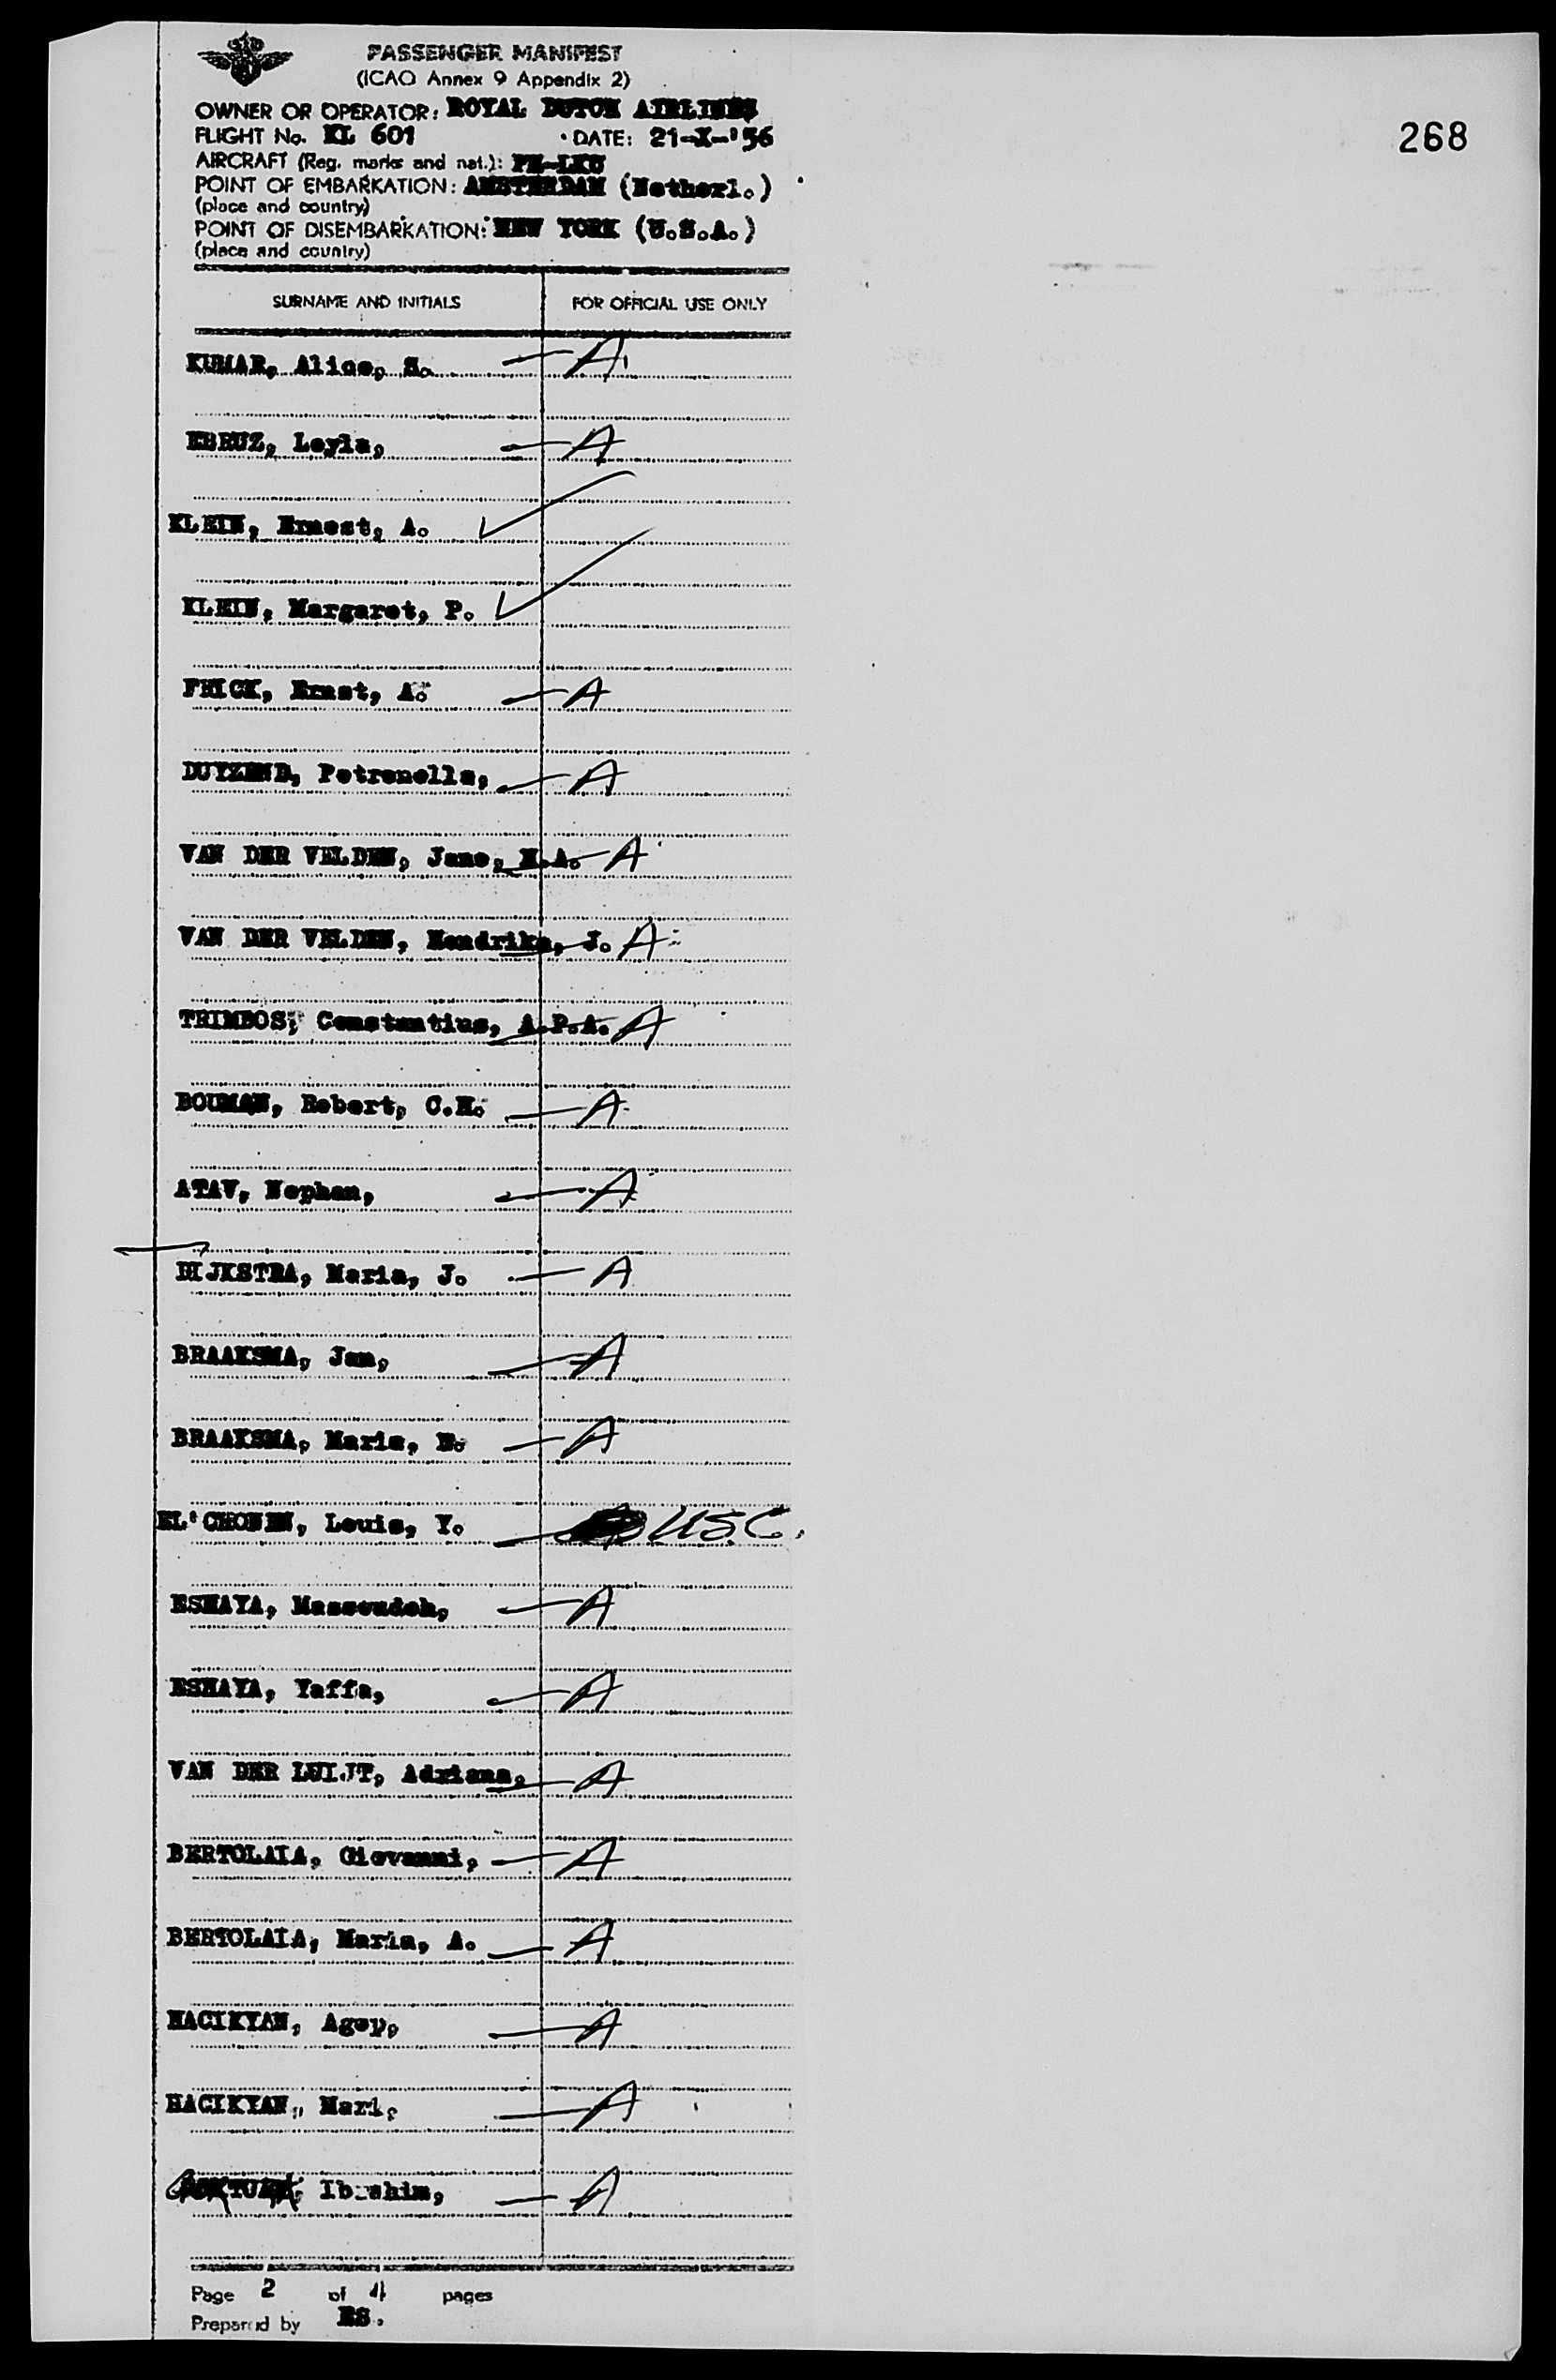 PASSENGER MANIFEST
(ICAO Annex 9 Appendix 2)
268
OWNER OR OPERATOR: ROYAL DUTCH AIRLINES
FLIGHT No. KL 601 DATE: 21-X-'56
AIRCRAFT (Reg. marks and nat.): PH-LKU
POINT OF EMBARKATION: AMSTERDAM (Netherl.)
(place and country)
POINT OF DISEMBARKATION: NEW YORK (U.S.A.)
(place and country)
SURNAME AND INITIALS FOR OFFICIAL USE ONLY
KUMAR, Alice, S. A
EBRUZ, Leyla, A
KLEIN, Ernest, A.
KLEIN, Margaret, P.
FRICK, Ernst, A. A
DUYZEND, Petronella, A
VAN DER VELDEN, Jane, M.A. A
VAN DER VELDEN, Hendrika, J. A
TRIMBOS, Constantius, A.P.A. A
BOUMAN, Robert, C.H. A
ATAV, Nephan, A
DIJKSTRA, Maria, J. A
BRAAKSMA, Jan, A
BRAAKSMA, Maria, A
EL'CHONEN, Louis, Y. USC.
ESHAYA, Massoudeh, A
ESHAYA, Yaffa, A
VAN DER LUIJT, Adriana, A
BERTOLAIA, Giovanni, A
BERTOLAIA, Maria, A. A
HACIKYAN, Agop, A
HACIKYAN, Mari, A
Ibrahim, A
Page 2 of 4 pages
Prepared by ES.